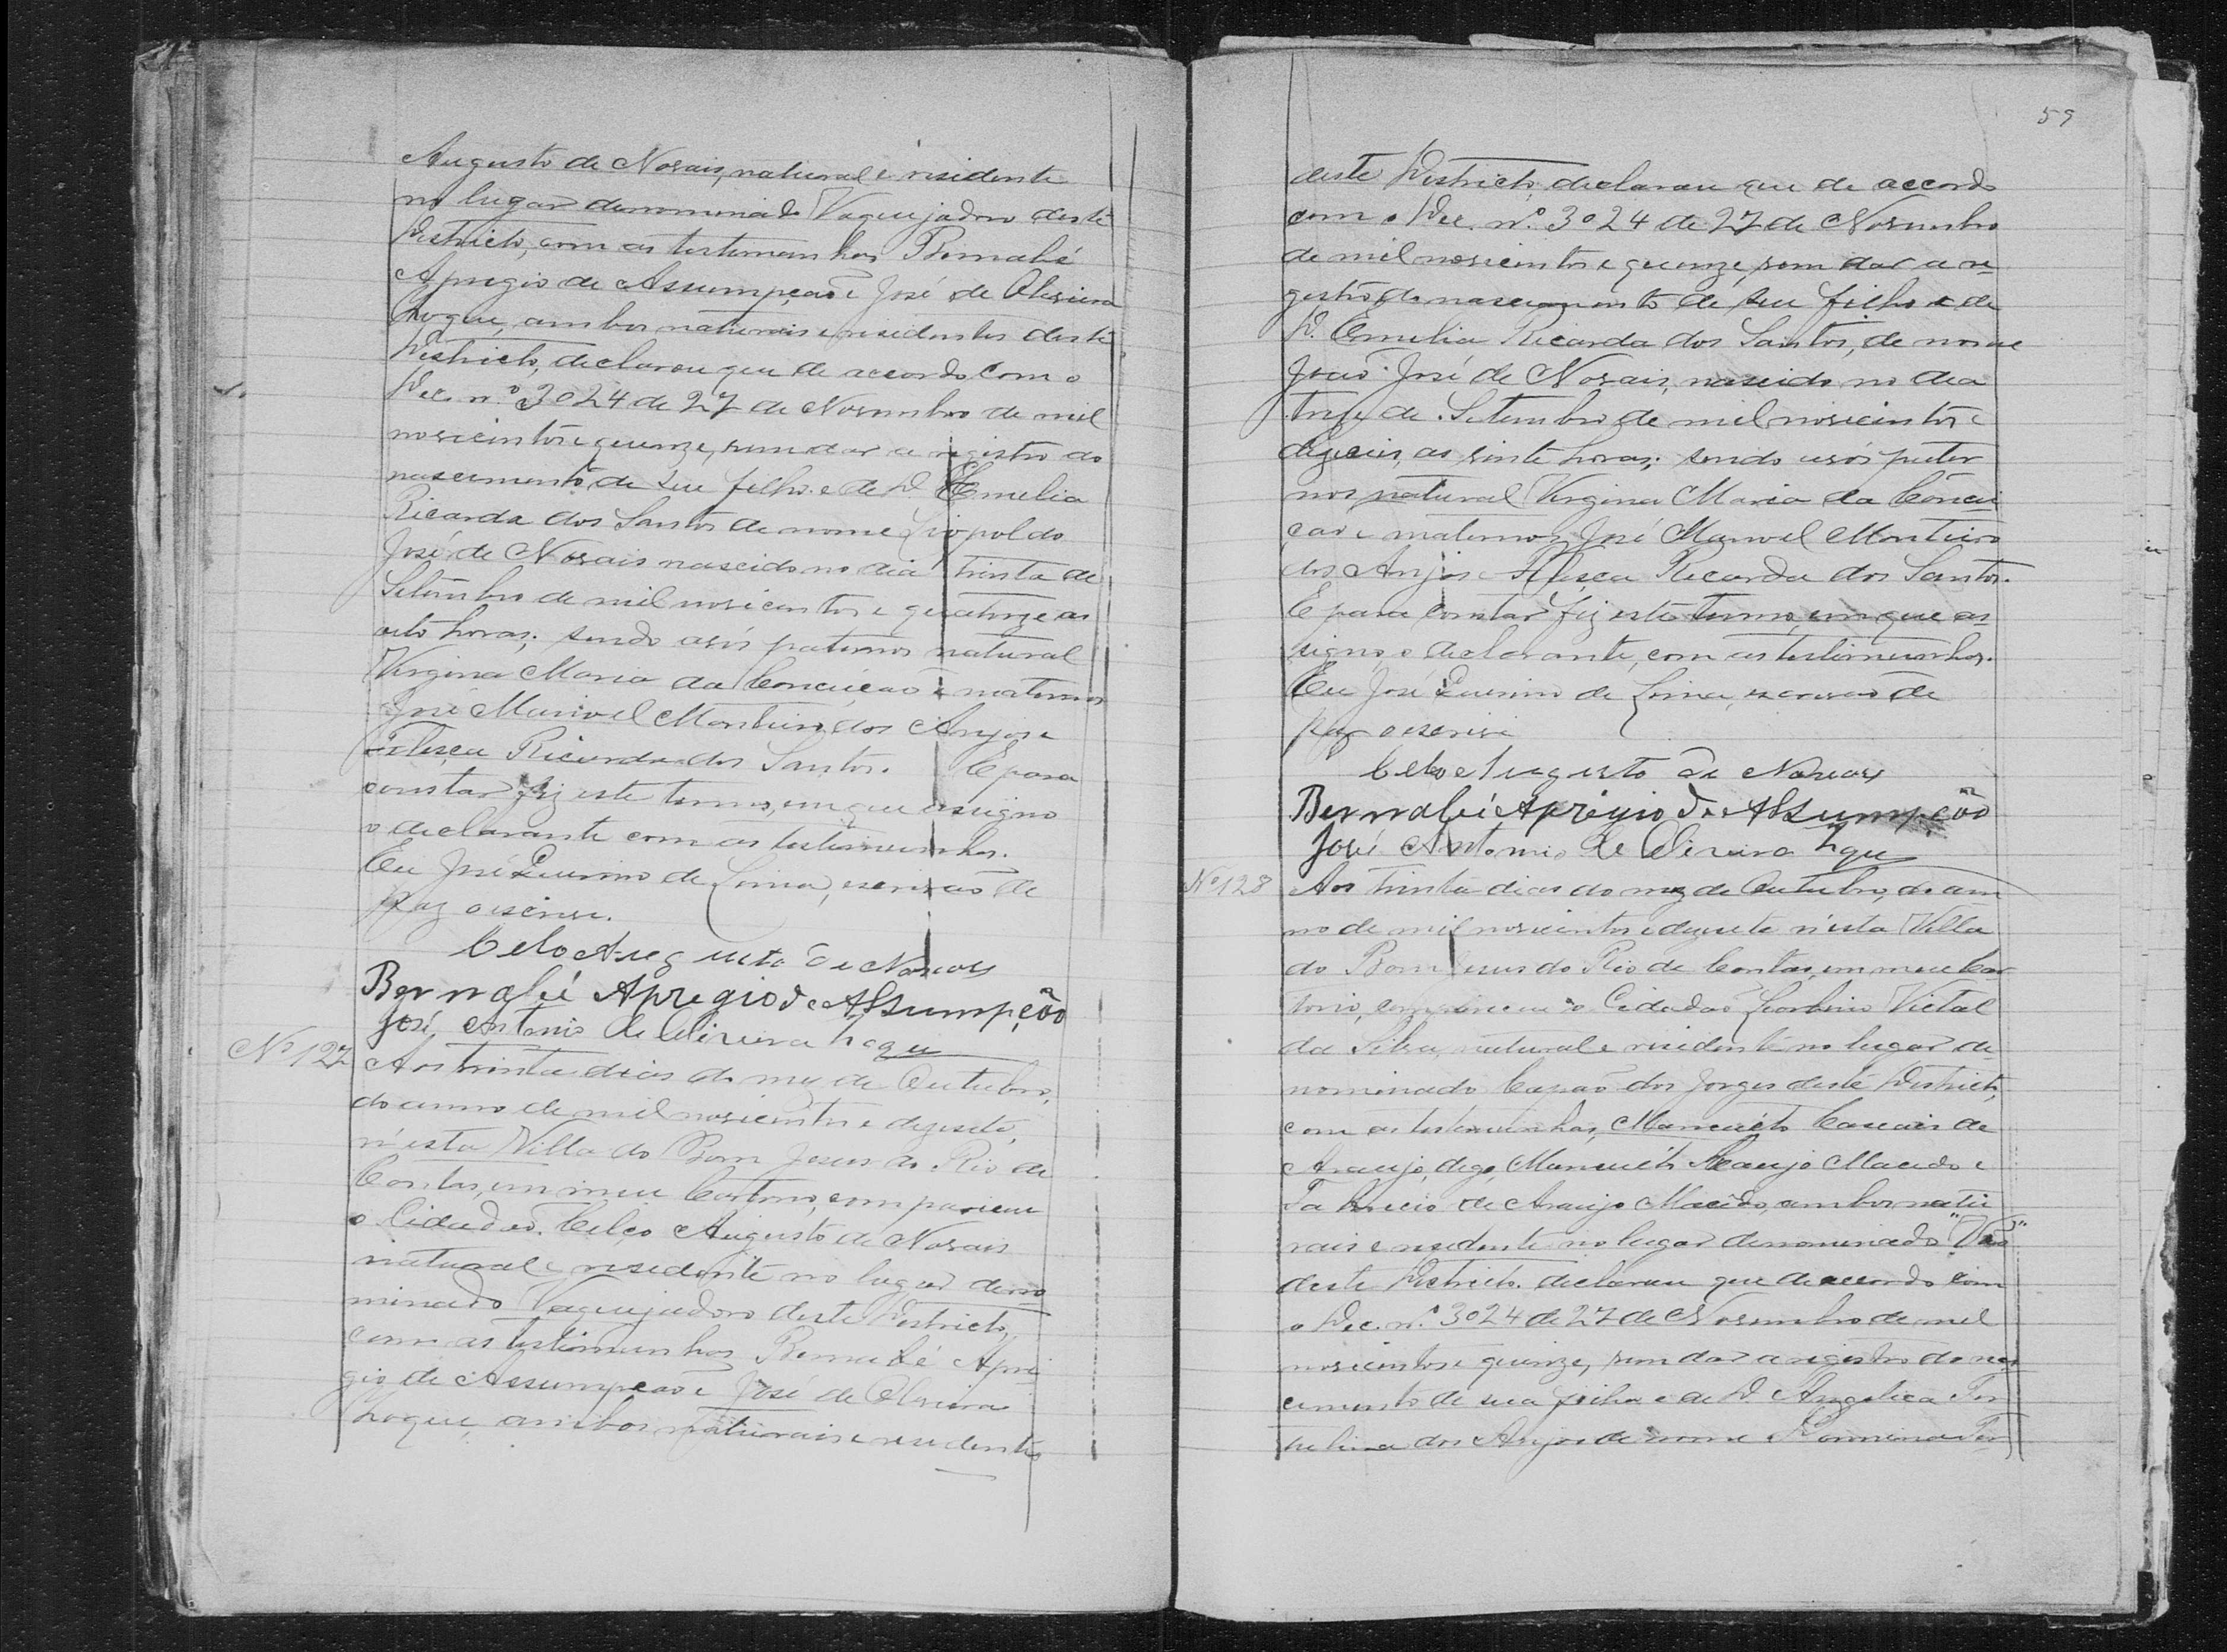 Augusto de Novais, natural e residente
no lugar denominado Vaquejadoro deste
Districto, com as testemunhas Bernabé
Apregio de Assumpção e José de Oliveira
Roque, ambos naturais e residentes deste
Districto, declarou que de accordo com o
Dec. nº 3024 de 27 de Novembro de mil
novicentos e quenze, vem dar a registro do
nascimento de seu filho e de D. Emelia
Ricarda dos Santos de nome Liopoldo
José de Novais nascido no dia trinta de
Setembro de mil novicentos e quatorze as
oito horas; sendo avós paternos natural
Virgina Maria da Conceição e maternos
José Manoel Monteiro dos Anjos e
Ricarda dos Santos. E para
constar fiz este termo, em que assigno
o declarante com as testemunhas.
Eu José Querino de Lima, escrivão de
paz o escrevi.
Celço Augusto de Novais
Bernabé Apregio de Assumpção
José Antonio de Oliveira Roque
Nº 127 Aos trinta dias do mez de Outubro,
do anno de mil novicentos e dezesete,
n'esta Villa do Bom Jesus do Rio de
Contas, em meu Cartorio, compareceu
o Cidadão Celço Augusto de Novais
natural e residente no lugar deno
minado Vaquejadoro deste Districto,
com as testemunhas Bernabé Apri
gio de Assumpção e José de Oliveira
Roque, ambos naturais e residentes
59
deste Districto, declarou que de accordo
com o Dec. nº 3024 de 27 de Novembro
de mil novicentos e quenze, vem dar a re
gistro do nascimento de seu filho e de
D. Emelia Ricarda dos Santos, de nome
João José de Novais, nascido no dia
treze de Setembro de mil novicentos e
dezeseis, as vinte horas; sendo avós pater
nos natural Virgina Maria da Concei
ção e maternos José Manoel Monteiro
dos Anjos e Ricarda dos Santos.
E para constar fiz este termo, em que as
signo, o declarante, com as testemunhas.
Eu José Querino de Lima, escrivão de
paz o escrevi
Celço Augusto de Novais
Bernabé Aprigio de Assumpção
José Antonio de Oliveira Roque
Nº 128 Aos trinta dias do mez de Outubro, do an
no de mil novicentos e dezesete n'esta Villa
do Bom Jesus do Rio de Contas, em meu Car
torio, compareceu o Cidadão Victal
da Silva, natural e residente no lugar de
nominado Capão dos Jorges deste Districto,
com as testemunhas, Manoel Cascais de
Araujo, digo, Araujo Macedo e
de Araujo Macêdo, ambos natu
rais e residente no lugar denominado
deste Districto. declarou que de accordo com
o Dec. nº 3024 de 27 de Novembro de mil
novicentos e quenze, vem dar a registro do nas
cimento de sua filha e de D. Angelica
dos Anjos de nome